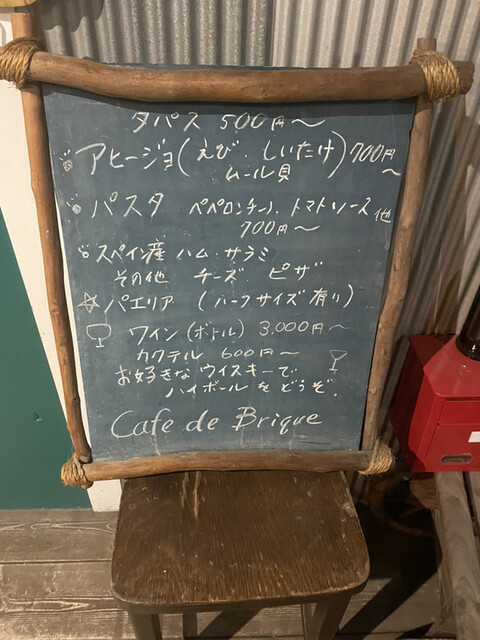 タパス 500円〜
アヒージョ(えび・しいたけ)700円〜
ムール貝
パスタ ペペロンチーノ、トマトソース他
700円〜
スペイン産 ハム・サラミ
その他 チーズ、ピザ
☆パエリア (ハーフサイズ有り)
ワイン(ボトル) 3,000円〜
カクテル 600円〜
お好きなウイスキーで
ハイボールをどうぞ。
Cafe de Brique